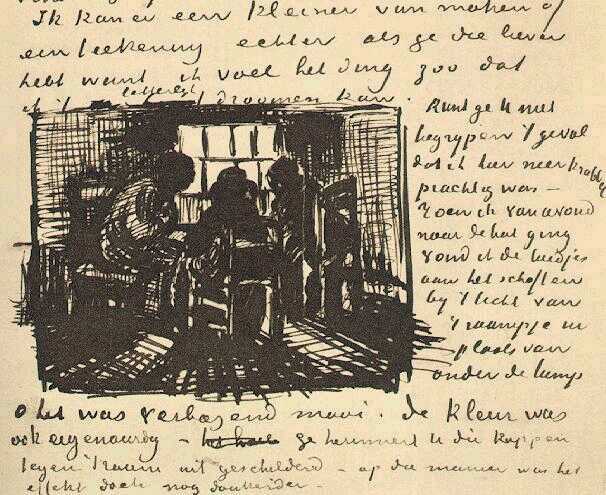 Ik kan er een kleiner van maken of
een teekening echter als ge die liever
hebt want ik voel het ding zoo dat
ik 't letterlijk droomen kan.
Kunt ge U niet
begrijpen 't geval
dat ik hier neer krabbel
prachtig was –
Toen ik van avond
naar de hut ging
vond ik de luidjes
aan het schoften
by 't licht van
't raampje in
plaats van
onder de lamp
o het was verbazend mooi. de kleur was
ook eigenaardig – ge herinnert U die koppen
tegen 't raam uit geschilderd – op die manier was het
effekt doch nog donkerder –